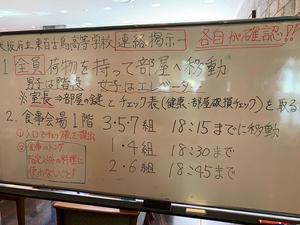 大阪府立東百舌鳥高等学校 連絡掲示 各自が確認!!
1 全員荷物を持って部屋へ移動
男子は階段 女子はエレベーター
※室長⇒部屋の鍵とチェック表(健康・部屋破損チェック)を取る
2. 食事会場1階 3・5・7組 18:15までに移動
①入口でチェック表を提出
1・4組 18:30まで
②食事のトング
指定以外の料理に
使わないこと!
2・6組 18:45まで